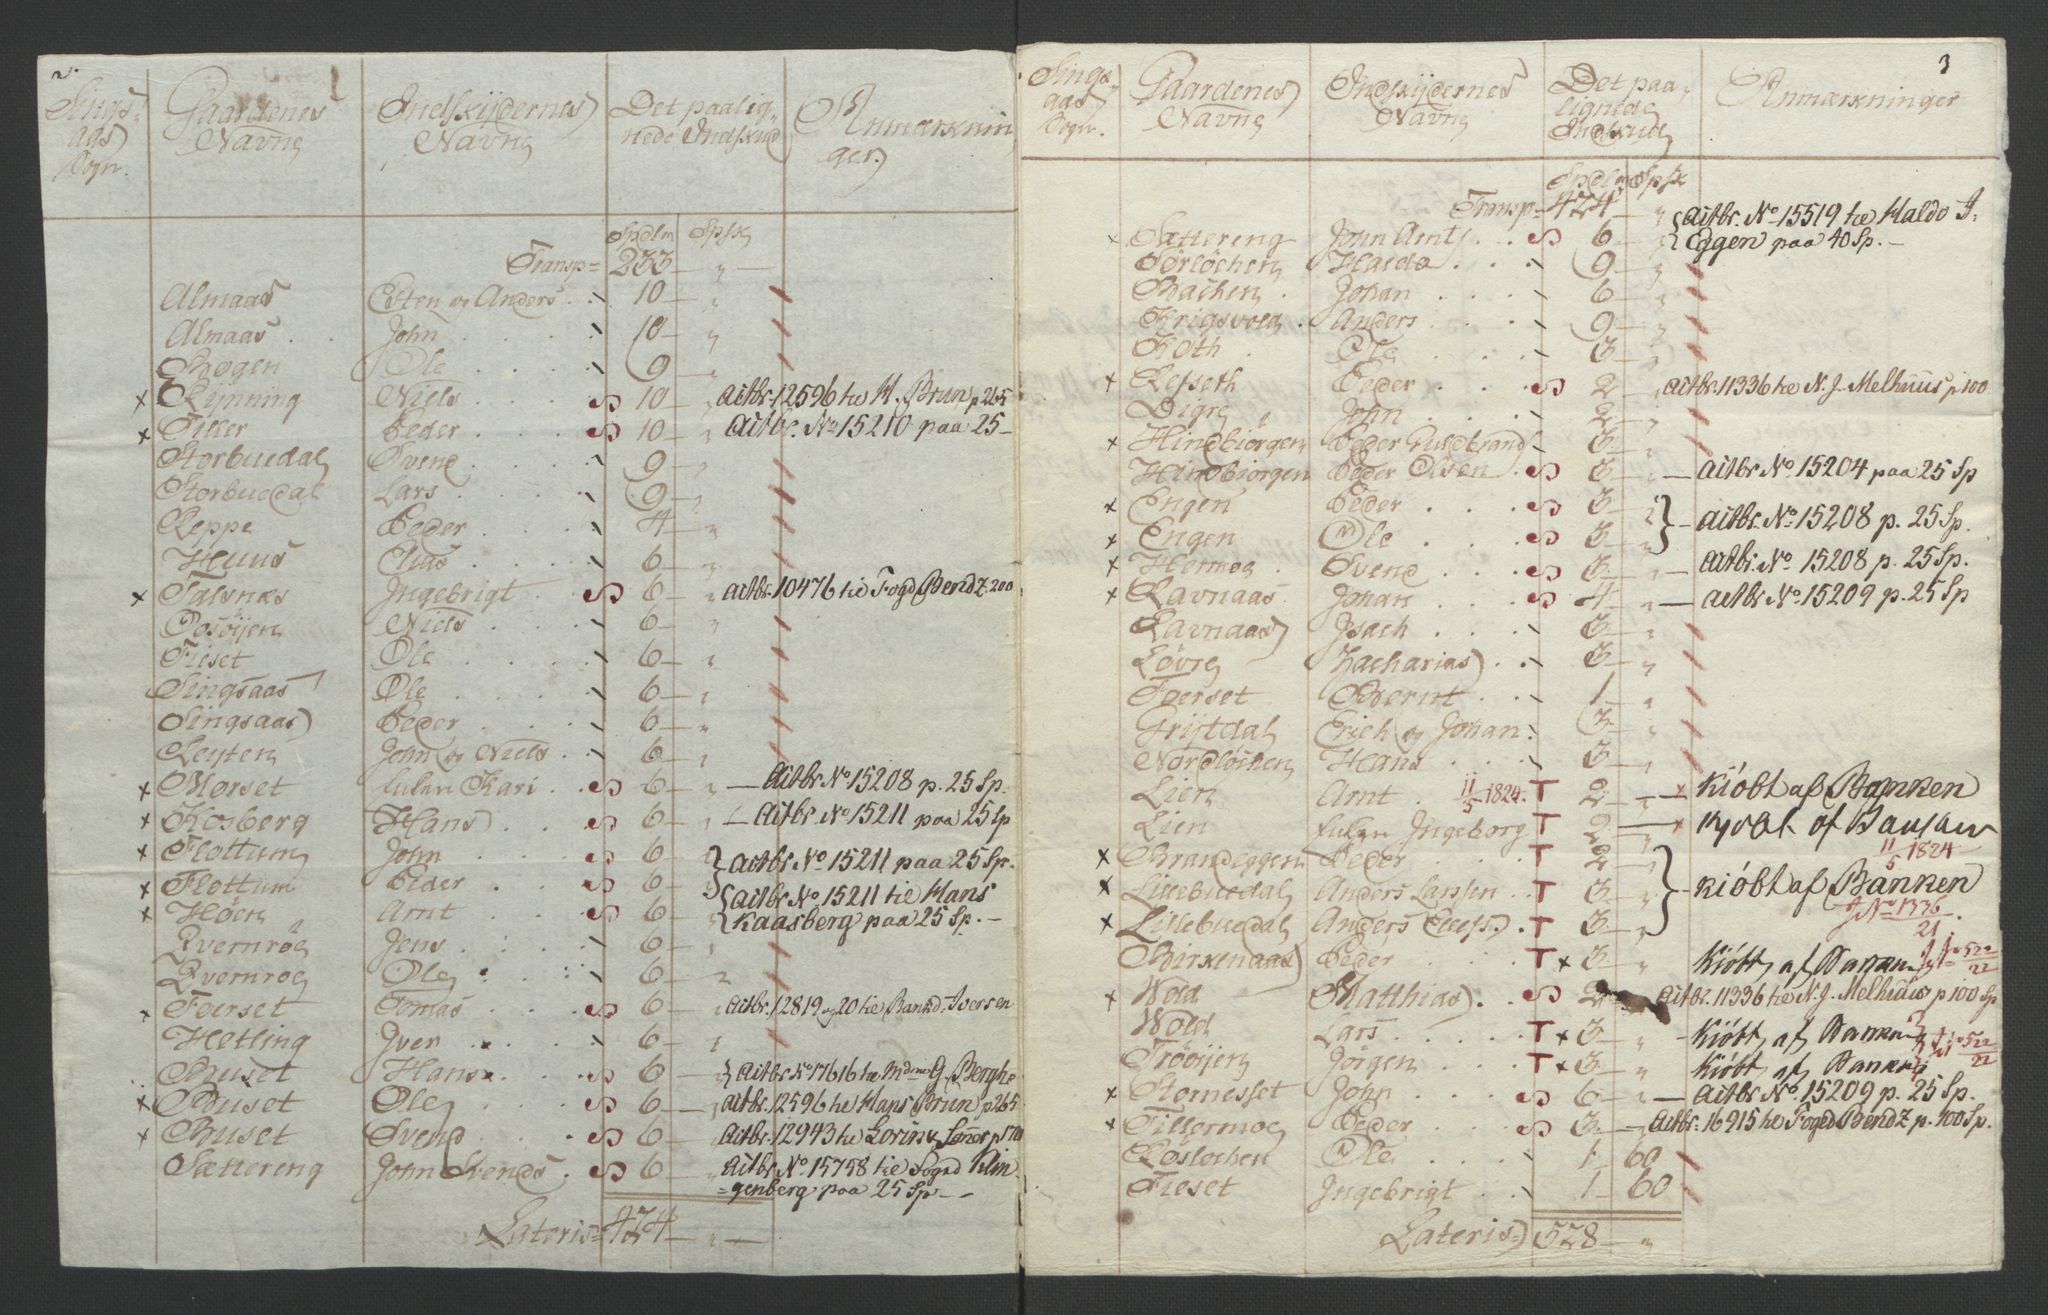 2.
Sings-
aas
Sogn.
Gaardenes
Navne
Indskydernes
Navne
Det paalig-
nede Indskud
Anmærknin
ger.
Spdlr Spsk
Transp= 233 — " —
Almaas Esten og Anders 10 — "
Almaas John 10 — "
Bogen Ole 9 — "
x Rynning Niels S 10 — " Actbr. 12596 til H. Brun p 265
x Tiller Peder S 10 — " Actbr. No 15210 paa 25 —
Storbuedal Svend 9 — "
Storbuedal Lars 9 — "
Reppe Peder 4 — "
Huus Elias 6 — "
x Talsnæs Ingebrigt S 6 — " Actbr. 10476 til Fogd Bendz 200
Niels 6 — "
Fieset Ole 6 — "
Singsaas Ole 6 — "
Singsaas Peder 6 — "
Løyten John og Niels 6 — "
x Morset Enken Kari S 6 — " — Actbr. No 15208 p. 25 Sp.
x Kosberg Hans S 6 — " — Actbr. No 15211 paa 25 Sp
x Flottum John S 6 — " } Actbr. No 15211 paa 25 Sp.
x Flottum Peder S 6 — " { Actbr. No 15211 til Hans
x Høen Arnt S 6 — " Kaasberg paa 25 Sp. —
Qvernrøe Jens 6 — "
Qvernroe Ole 6 — "
x Foerset Tomas S 6 — " Actbr. 12819 og 20 til Bankd. Iversen
Hetling Iver 6 — "
Buset Hans S 6 — " } Actbr. No 11616 til Mdme G. Berghe
x Buset Ole S 6 — " Actbr. 12596 til Hans Brun p 265
x Buset Svend S 6 — " Actbr. 12943 til Lorink
Sættereng John Svends S 6 — " Actbr. No 15758 til Fogd Klin
=genberg paa 25 Sp —
Lateris = 474 — " —
3
Sings-
aas
Sogn.
Gaardenes
Navne
Indskydernes
Navne
Det paa-
lignede
Indskud
Anmærkninger
Spdlr Spsk
Transp= 474 — " { Actbr. No 15519 til Haldo I.
x Sættereng John Arnts S 6 — " { Eggen paa 40 Sp. —
Sørløchen Haldo 9 — "
Bachen Johan 6 — "
Krigsvold Anders 9 — "
Koth Ole 3 — "
x Refseth Peder S 2 — Actbr. 11336 til N. J. Melhuus p 100
Digre John 2 — "
x Hindbiørgen Peder Guldbrand 3 — "
Hindbiørgen Peder Olsen S 3 — " — Actbr. No 15204 paa 25 Sp
x Engen Peder S 3 — " } — Actbr. No 15208 p. 25 Sp.
x Engen Ole S 3 — "
x Hermoe Svend S 3 — " — Actbr. No 15208 p. 25 Sp.
x Ravnaas Johan S 4 — " — Actbr No 15209 p. 25 Sp
Ravnaas Isach 3 — "
Løvre Zacharias 3 — "
Foerset Bernt 1 — "
Grytdal Erich og Johan 3 — "
Nordløchen Hans 3 — "
Lien Arnt 11/5 1824. T 2 — " — x Kiöbt af Banken
Lien Enken Ingeborg T 2 — x Kjöbt af Banken
11/5 1824
x Brandeggen Peder T 2 — "
x Lillebuedal Anders Larsen T 3 — " } — Kiöbt af Banken
x Lillebuedal Anders T 3 — " J No 1336/21
Birkenaas Peder T x 3 — " Kiöbt af Banken J No 522/22
x Wold Matthias S 2 — Actbr. 11336 til N. J. Melhuus p 100 Sp
Wold Lars T x 3 — " — Kiöbt af Banken J No 522/22
Trøøyen Jörgen T x 3 — " Kiöbt af Banken
x Stornesset John S 6 — " — Actbr. No 15209 p. 25 Sp.
x Tillermoe Peder S 3 — " Actbr. 16915 til Foged Bendz p. 100 Sp.
Røsløchen Ole 1 — 60
Fieset Ingebrigt 1 — 60
Lateris 578 — "